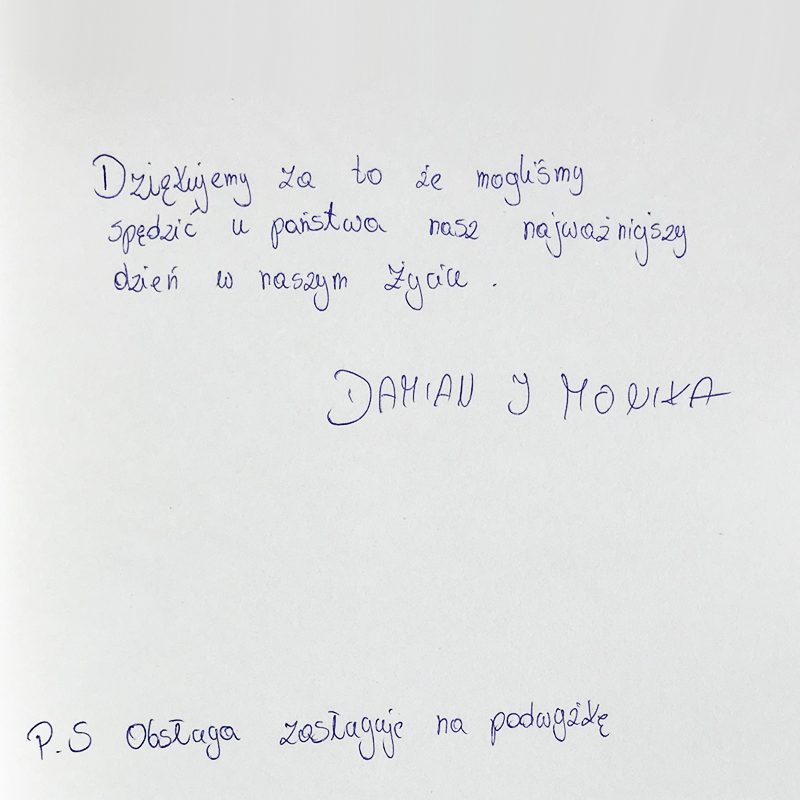 Dziękujemy za to że mogliśmy
spędzić u państwa nasz najważniejszy
dzień w naszym życiu.
DAMIAN I MONIKA
P.S Obsługa zasługuje na podwyżkę